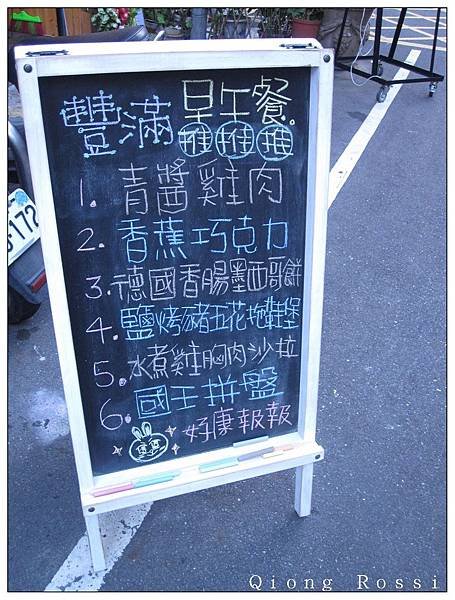 豐滿 早午餐
推推推
1. 青醬雞肉
2. 香蕉巧克力
3. 德國香腸墨西哥餅
4. 鹽烤豬五花拖鞋堡
5. 水煮雞胸肉沙拉
6. 國王拼盤
好康報報
Qiong Rossi